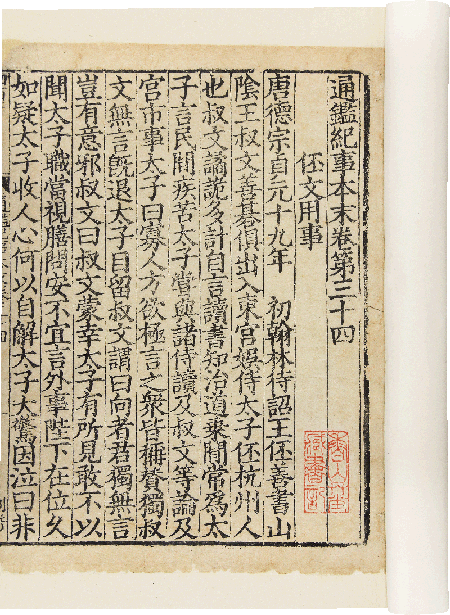 通鑑紀事本末卷第三十四
伾文用事
唐德宗貞元十九年 初翰林待詔王伾善書山
陰王叔文善碁俱出入東宮娛侍太子伾杭州人
也叔文譎詭多計自言讀書知治道乘閒常爲太
子言民閒疾苦太子嘗與諸侍讀及叔文等論及
宮市事太子曰寡人方欲極言之衆皆稱贊獨叔
文無言旣退太子自留叔文謂曰向者君獨無言
豈有意邪叔文曰叔文蒙幸太子有所見敢不以
聞太子職當視膳問安不宜言外事陛下在位久
如疑太子收人心何以自解太子大驚因泣曰非